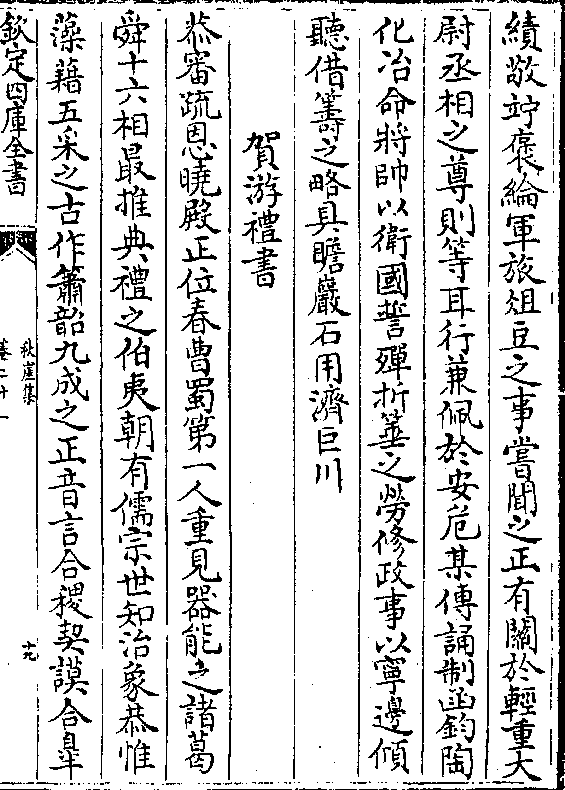 績敬竚褒綸軍旅俎豆之事嘗聞之正有關於輕重大
尉丞相之尊則等耳行兼佩於安危某傳誦制函鈞陶
化冶命將帥以衛國誓殫折箠之勞修政事以寧邊傾
聽借籌之略具瞻巖石用濟巨川
賀游禮書
恭審疏恩曉殿正位春曹蜀第一人重見器能之諸葛
舜十六相最推典禮之伯夷朝有儒宗世知治象恭惟
藻藉五采之古作簫韶九成之正音言合稷契謨合臯
欽定四庫全書
秋崖集
卷二十一
十九